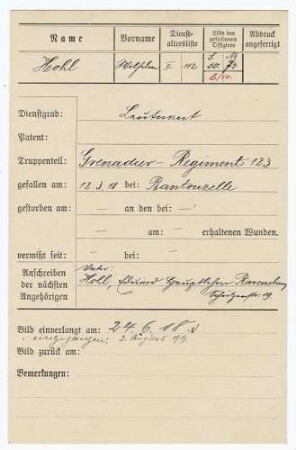 Name Vorname Dienst- Bild der Abdruck
altersliste gefallenen angefertigt
Offiziere
Hohl Wilhelm I 112 30. 79
6/10.
Dienstgrad: Leutnant
Patent:
Truppenteil: Grenadier-Regiment 123
gefallen am: 12.3.18 bei: Rantouzelle
gestorben am: — an den bei: —
— am: — erhaltenen Wunden.
vermißt seit: — bei: —
Anschreiben Vater:
der nächsten Hohl, Eduard Hauptlehrer Ravensburg
Angehörigen Schützenstr 19.
Bild einverlangt am: 24.6.18.
eingegangen: 3. August 1919.
Bild zurück am:
Bemerkungen: